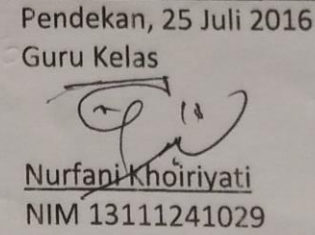 Pendekan, 25 Juli 2016
Guru Kelas
Nurfani Khoiriyati
NIM 13111241029